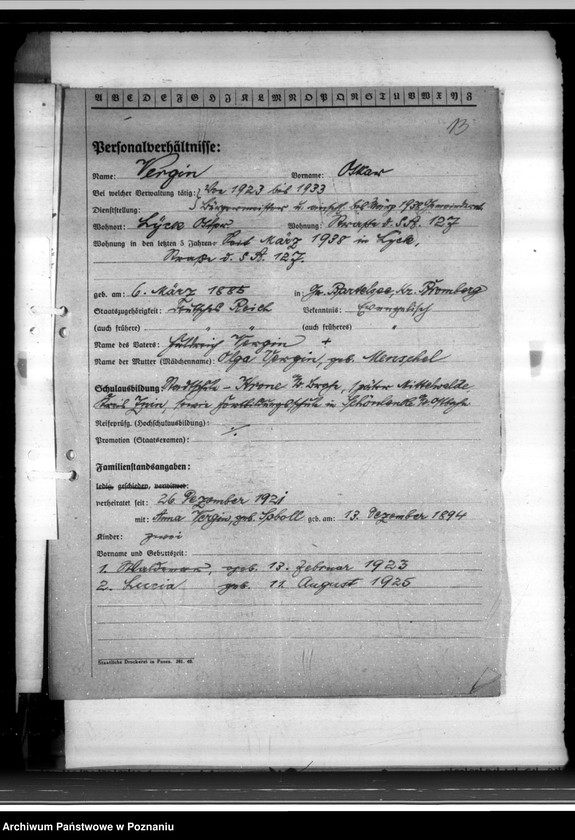 A B C D E F G H J K L M N O P Q R S T U V W X Y Z
13
Personalverhältnisse:
Name: Vergin Vorname: Oskar
Bei welcher Verwaltung tätig: Von 1923 bis 1933
Dienststellung: Bürgermeister u. bis März 1938
Wohnort: Lyck Ostpr. Wohnung: Straße d. S.A. 127
Wohnung in den letzten 5 Jahren: Seit März 1938 in Lyck,
Straße d. S.A. 127
geb. am: 6. März 1885 in: Gr. Bartelsee, Kr. Bromberg
Staatszugehörigkeit: Deutsches Reich Bekenntnis: Evangelisch
(auch frühere) " (auch früheres) "
Name des Vaters: Vergin +
Name der Mutter (Mädchenname): Olga Vergin, geb. Menschel
Schulausbildung: Stadtschule - Krone a/Brahe, später Mittelwalde
Kreis Znin, sowie Fortbildungsschule in Schönlanke
Reifeprüfg. (Hochschulausbildung):
Promotion (Staatsexamen):
Familienstandsangaben:
ledig, geschieden, verwitwet:
verheiratet seit: 26. Dezember 1921
mit: Anna Vergin, geb. Soboll geb. am: 13. Dezember 1894
Kinder: zwei
Vorname und Geburtszeit:
1. geb. 13. Februar 1923
2. Lucia geb. 11. August 1925
Staatliche Druckerei in Posen.
Archiwum Państwowe w Poznaniu